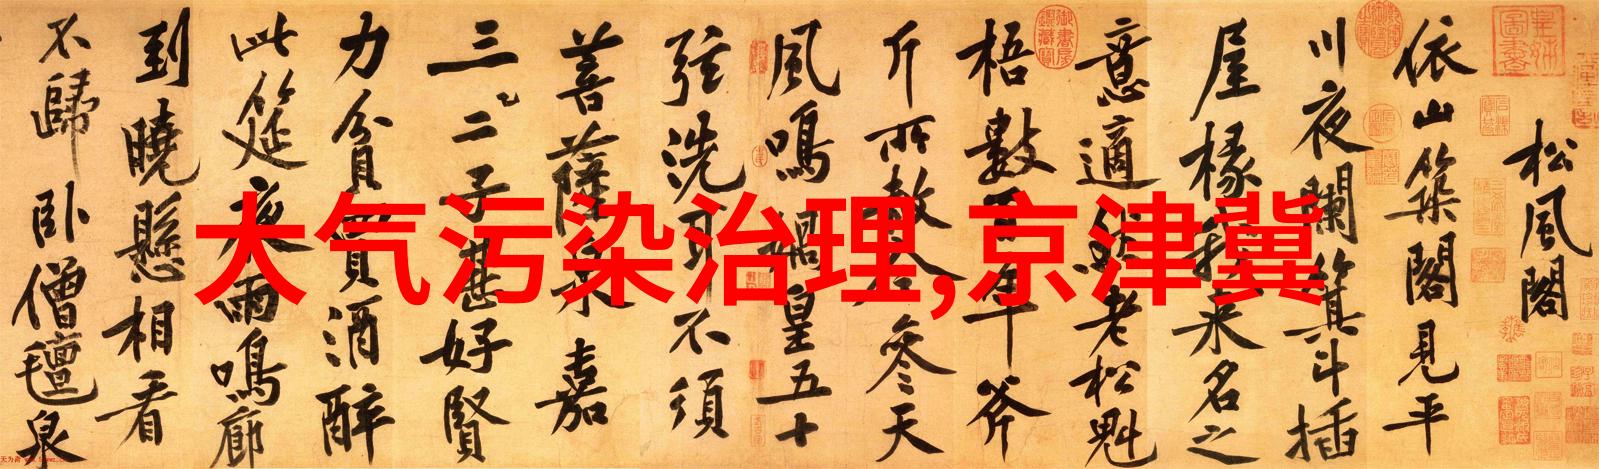 大气污染治理,京津冀
松風閣
依山築閣見平
川夜闌箕斗插
屋椽我來名之
意適然老松魁
梧數百年斧
斤所赦今參天
風鳴媧皇五十
弦洗耳不須
菩薩泉嘉
三二子甚好賢
力貧買酒醉
此筵夜雨鳴廊
到曉懸相看
不歸臥僧氈泉
御書房鑑藏寶